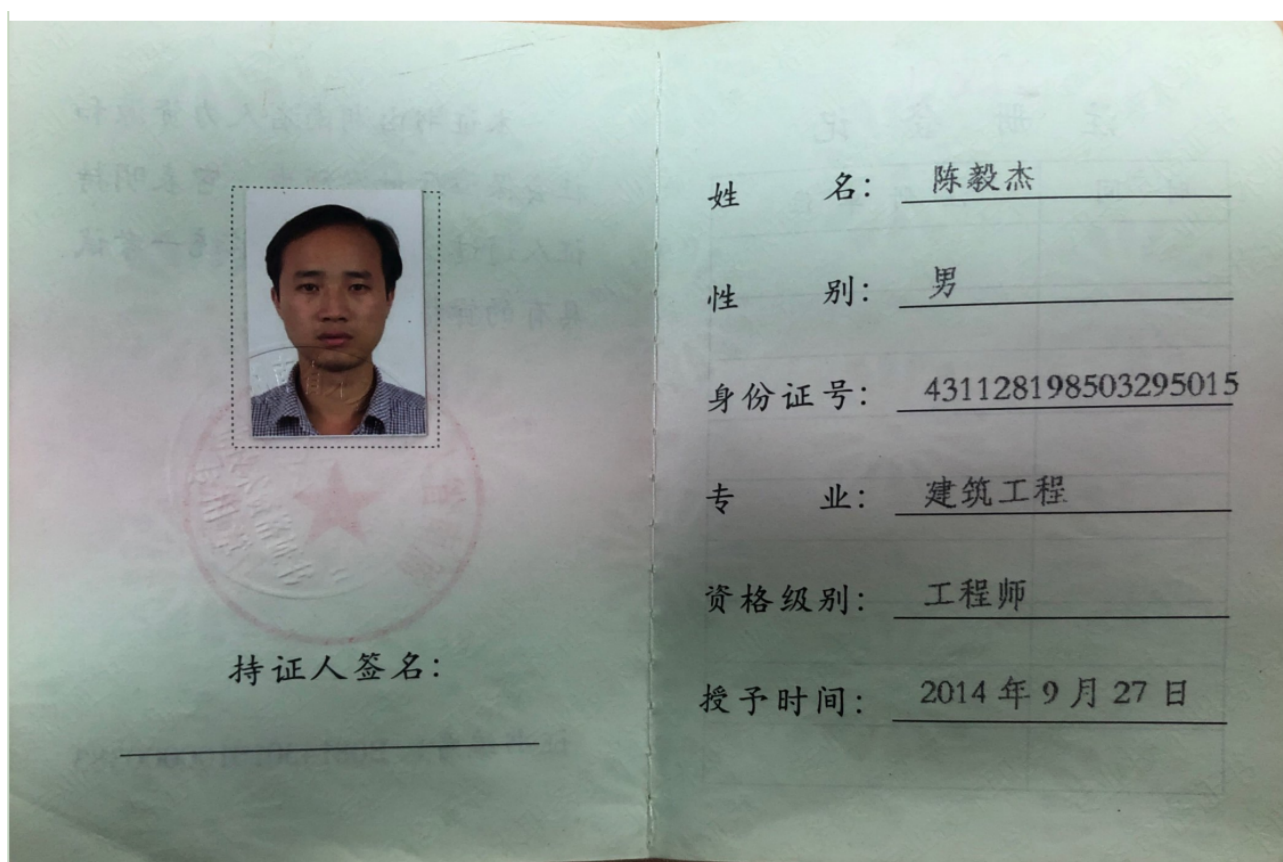 持证人签名:
姓 名: 陈毅杰
性 别: 男
身份证号: 431128198503295015
专 业: 建筑工程
资格级别: 工程师
授予时间: 2014 年 9 月 27 日